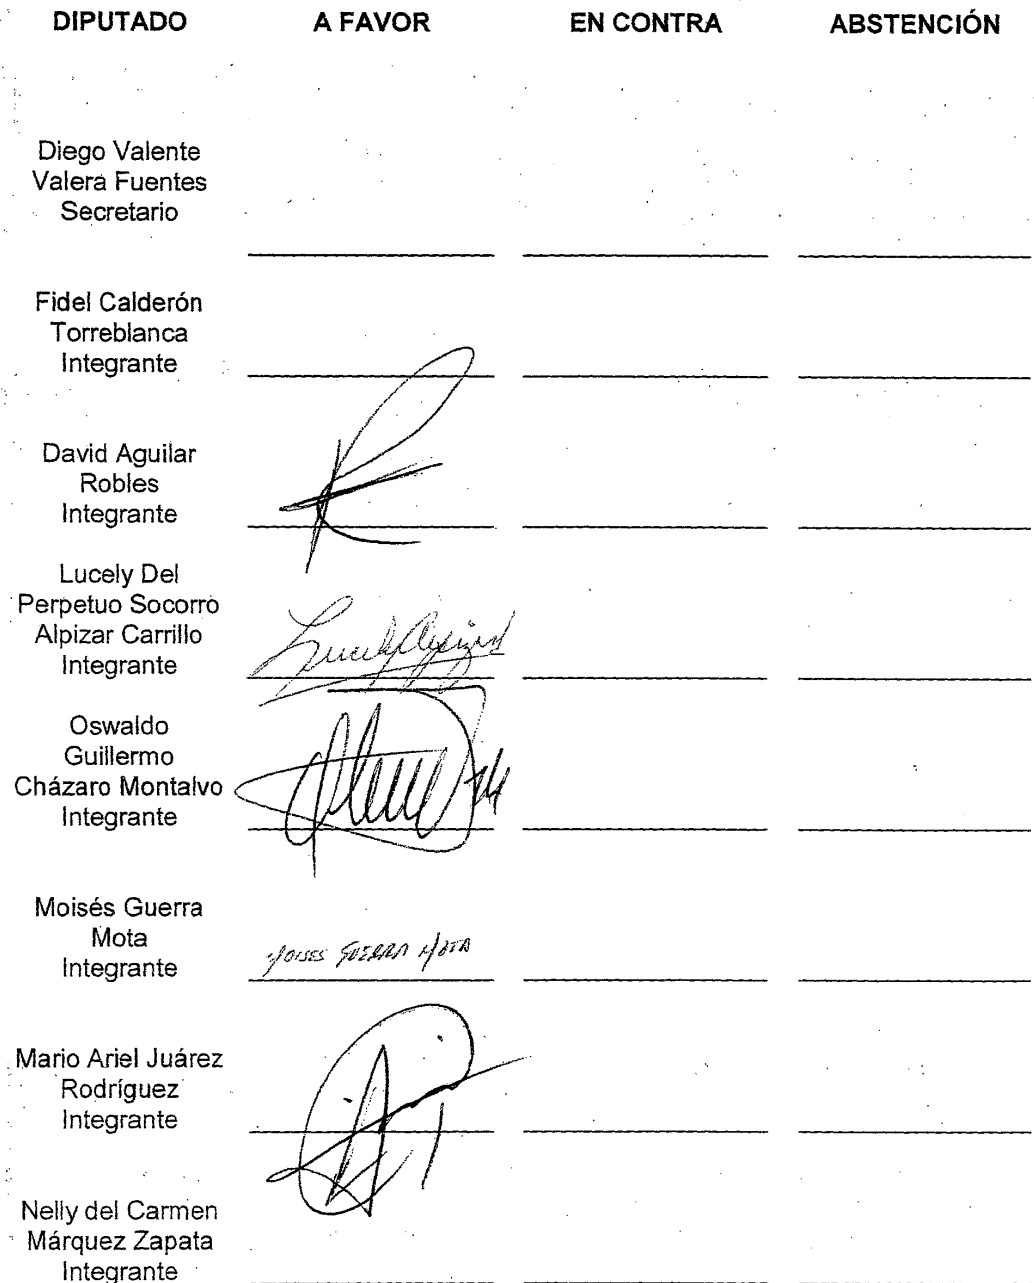 DIPUTADO A FAVOR EN CONTRA ABSTENCIÓN
Diego Valente
Valera Fuentes
Secretario
Fidel Calderón
Torreblanca
Integrante
David Aguilar
Robles
Integrante
Lucely Del
Perpetuo Socorro
Alpizar Carrillo
Integrante
Lucely Alpizar
Oswaldo
Guillermo
Cházaro Montalvo
Integrante
Moisés Guerra
Mota
Integrante
MOISES GUERRA MOTA
Mario Ariel Juárez
Rodríguez
Integrante
Nelly del Carmen
Márquez Zapata
Integrante